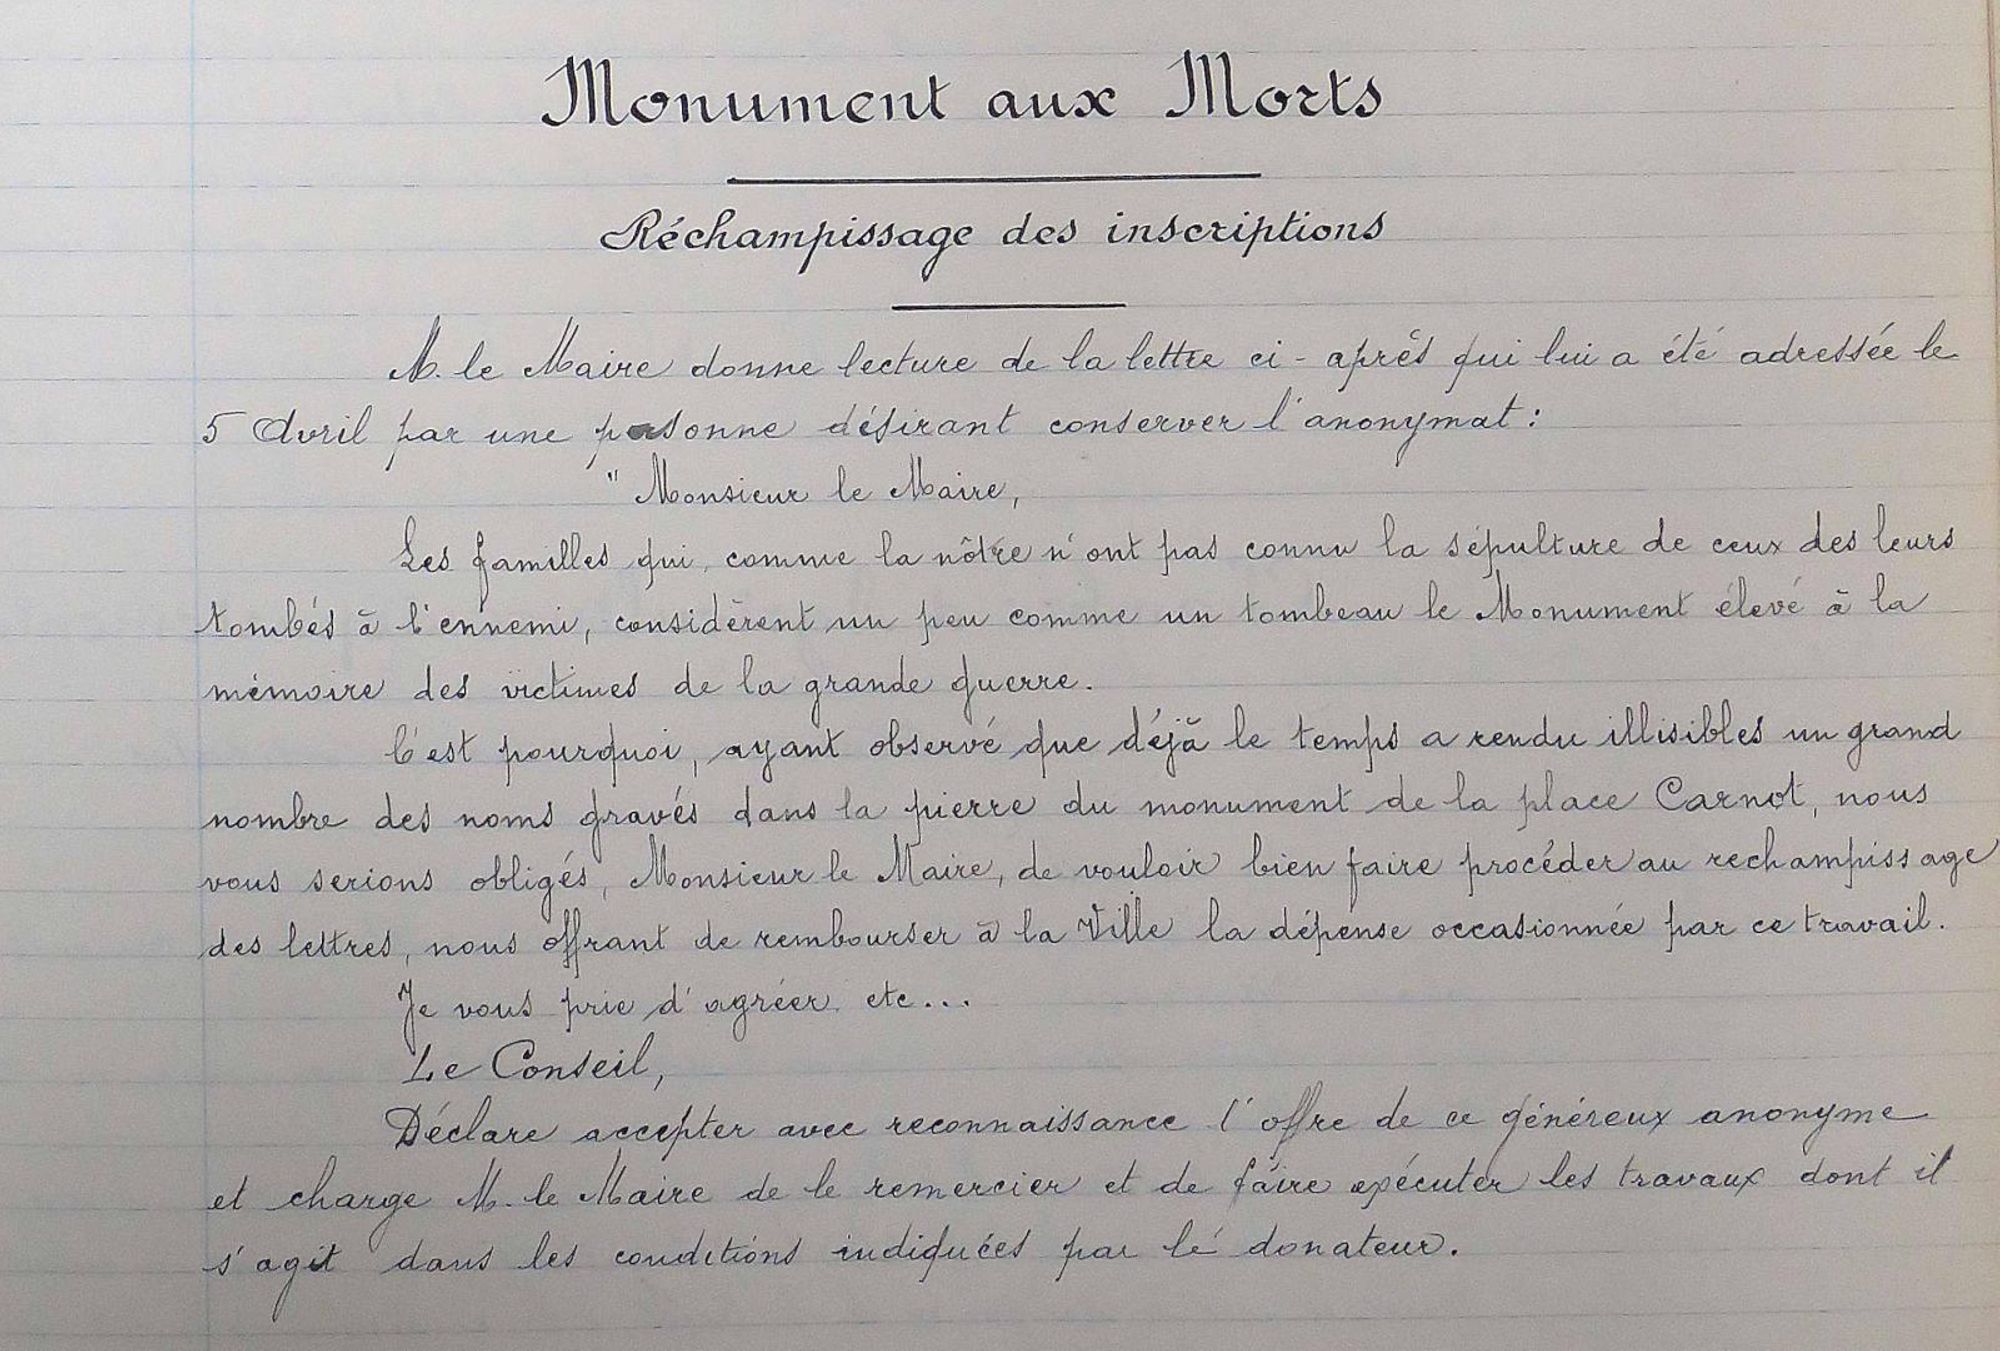 Monument aux Morts
Réchampissage des inscriptions
M. le Maire donne lecture de la lettre ci-après qui lui a été adressée le
5 Avril par une personne désirant conserver l'anonymat :
" Monsieur le Maire,
Les familles qui, comme la nôtre n'ont pas connu la sépulture de ceux des leurs
tombés à l'ennemi, considèrent un peu comme un tombeau le Monument élevé à la
mémoire des victimes de la grande guerre.
C'est pourquoi, ayant observé que déjà le temps a rendu illisibles un grand
nombre des noms gravés dans la pierre du monument de la place Carnot, nous
vous serions obligés, Monsieur le Maire, de vouloir bien faire procéder au rechampissage
des lettres, nous offrant de rembourser à la Ville la dépense occasionnée par ce travail.
Je vous prie d'agréer. etc...
Le Conseil,
Déclare accepter avec reconnaissance l'offre de ce généreux anonyme
et charge M. le Maire de le remercier et de faire exécuter les travaux dont il
s'agit dans les conditions indiquées par le donateur.